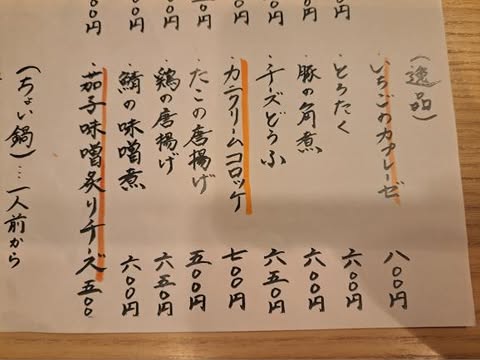 (逸品)
・いちごのカプレーゼ 八〇〇円
・とろたく 六〇〇円
・豚の角煮 六〇〇円
・チーズどうふ 六五〇円
・カニクリームコロッケ 七〇〇円
・たこの唐揚げ 五〇〇円
・鶏の唐揚げ 六五〇円
・鯖の味噌煮 六〇〇円
・茄子味噌炙りチーズ 五〇〇
(ちょい鍋)…一人前から